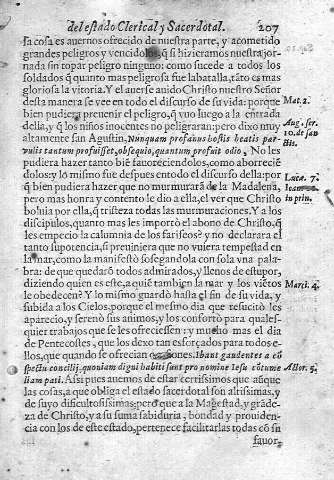 del estado Clerical y Sacerdotal. 207
sa cosa es auernos ofrecido de nuestra parte, y acometido
grandes peligros y vencidolos, q̃ si hizieramos nuestra jor-
nada sin topar peligro ninguno: como sucede a todos los
soldados q̃ quanto mas peligrosa fue la batalla, tãto es mas
gloriosa la vitoria. Y el auerse auido Christo nuestro Señor
desta manera se vee en todo el discurso de su vida: porque
bien pudiera preuenir el peligro, q̃ vuo luego a la entrada
della, y q̃ los niños inocentes no peligraran: pero dixo muy
altamente san Agustin, Nunquam profanus hostis beatis par-
uulis tantum profuisset, obsequio, quantum profuit odio, No les
pudiera hazer tanto biẽ fauoreciendolos, como aborrecié
dolos: y lo mismo fue despues en todo el discurso della: por
q̃ bien pudiera hazer que no murmurarã de la Madalena,
pero mas honra y contento le dio a ella, el ver que Christo
boluia por ella, q̃ tristeza todas las murmuraciones. Y a los
dicipulos, quanto mas les importò el abono de Christo, q̃
les empecio la calumnia de los fariseos? y no declarara el
tanto su potencia, si preuiniera que no vuiera tempestad en
la mar, como la manifestò sosegandola con sola vna pala-
bra: de que quedarõ todos admirados, y llenos de estupor,
diziendo quien es este, a quiẽ tambien la mar y los viẽtos
le obedecen? Y lo mismo guardò hasta el fin de su vida, y
subida a los Cielos: porque el mesmo dia que resucitò les
aparecio, y serenò sus animos, y los confortò para quales-
quier trabajos que se les ofreciessen: y mucho mas el dia
de Pentecostes, que los dexò tan esforçados para todos e-
llos, que quando se ofrecian ocasiones. Ibant gaudentes a cõ
spectu concilij, quoniam digni habiti sunt pro nomine Iesu cõtume
liam pati. Assi pues auemos de estar certissimos que aũque
las cosas, a que obliga el estado sacerdotal son altissimas, y
de suyo dificultosissimas: pero que a la Magestad, y grãde-
za de Christo, y a su suma sabiduria, bondad y prouiden-
cia con los de este estado, pertenece facilitarlas todas cõ su
fauor,
Mat. 2.
Aug. ser.
10. de san
ctis.
Lucæ. 7.
Ioan
in prin.
Marci. 4.
Actor. 5.